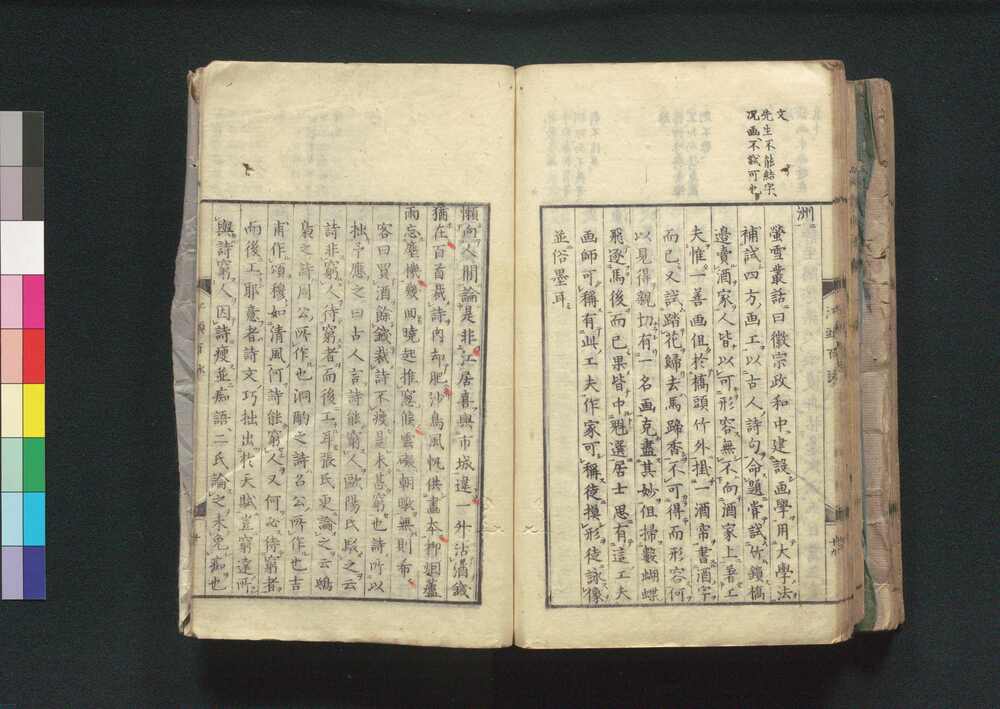 文
先生不能結字、
况画、不試可也、
洲
螢雪叢話曰徽宗政和中建設画學用大學法
補試四方画工以古人詩句命題嘗試竹鎖橋
邊賣酒家人皆以可形容無不向酒家上著工
夫惟一善画但於橋頭竹外掛一酒帘書酒字
而已又試踏花歸去馬蹄香不可得而形容何
以見得親切有一名画克盡其妙但掃數蝴蝶
飛逐馬後而已果皆中魁選居士思有這工夫
画師可稱有此工夫作家可稱徒摸形徒詠像
並俗墨耳
懶向人間論是非江居喜與市城違一外沽酒錢
猶在百首裁詩肉却肥沙鳥風帆供畫本柳烟蘆
雨忘塵機幾回曉起推窓候雲礙朝暾無則希
客曰買酒餘錢裁詩不瘦是未甚窮也詩所以
拙予應之曰古人言詩能窮人歐陽氏駁之云
詩非窮人待窮者而後工耳張氏更論之云鴟
鴞之詩周公所作也泂酌之詩召公所作也吉
甫作頌穆如清風何詩能窮人又何必待窮者
而後工耶意者詩文巧拙出於天賦豈窮達所
與詩窮人因詩瘦並痴語二氏論之未免痴也